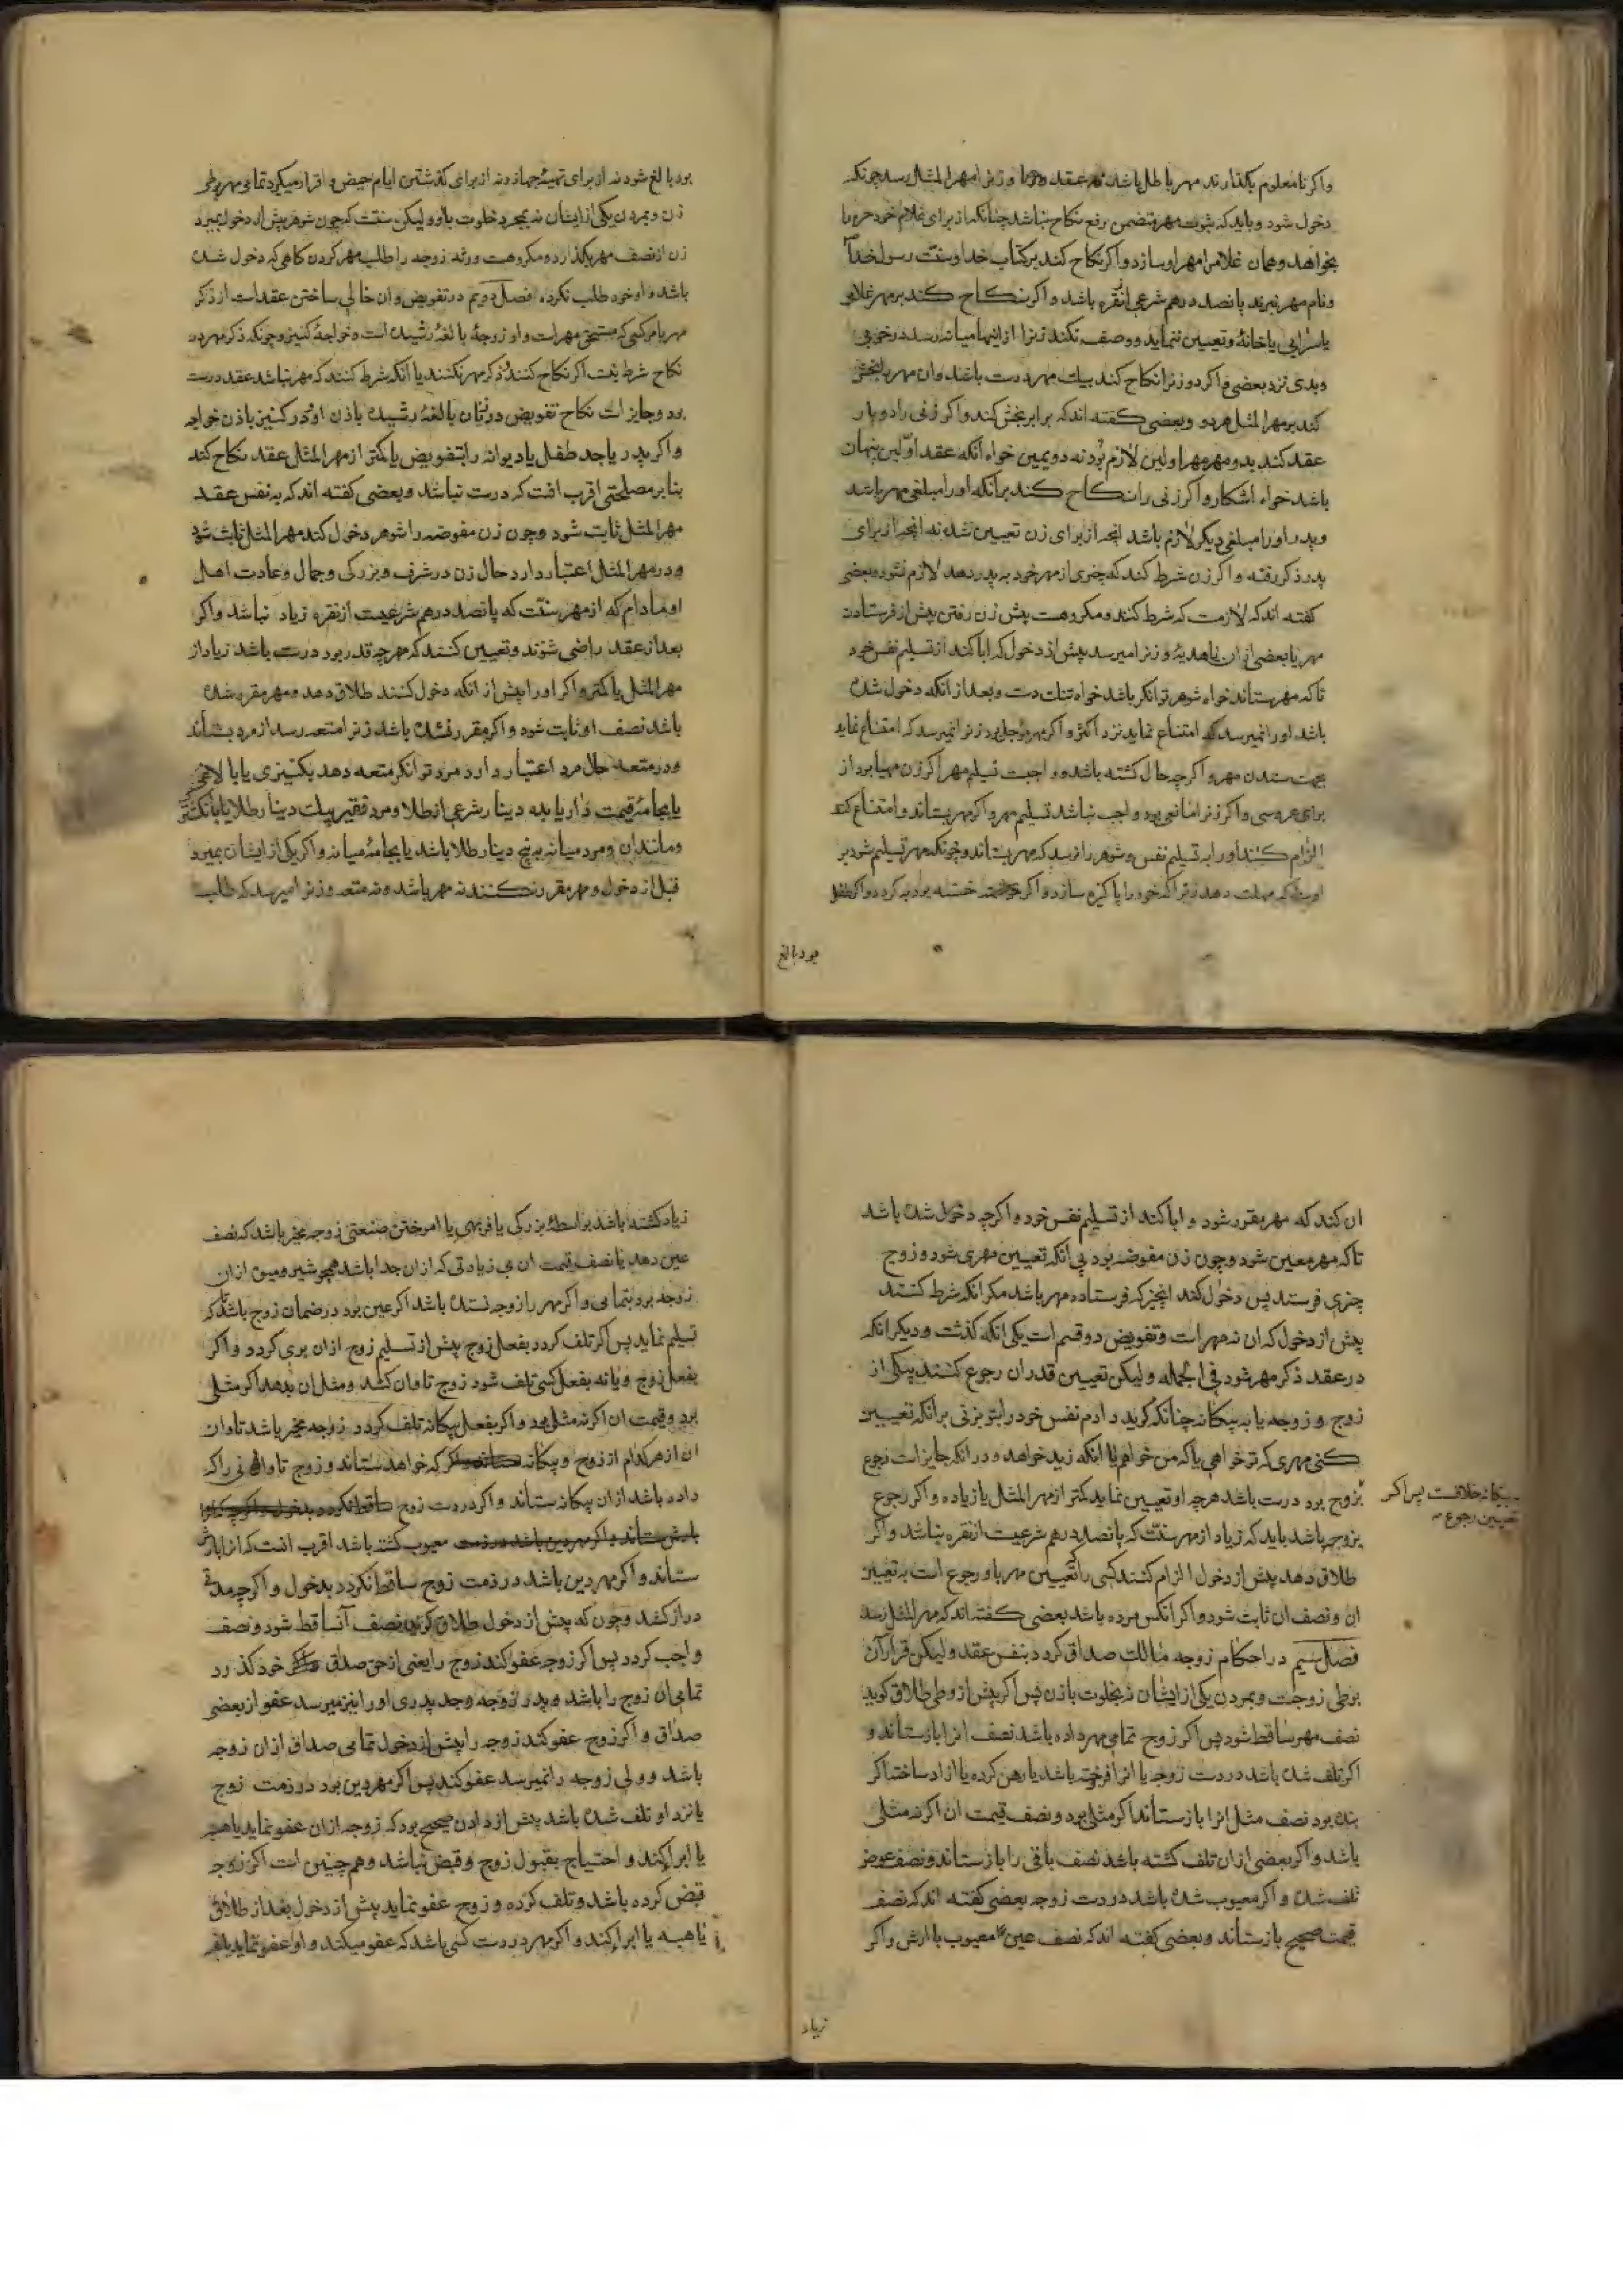 واکر نامعلوم بکذارند مهر باطل باشد نه عقد و زنرا مهرالمثل رسد چونکه
دخول شود و باید که ثبوت مهر متضمن رفع نکاح نباشد چنانکه از برای غلام خود حره را
بخواهد و همان غلامرا مهر او سازد و اکر نکاح کند بر کتاب خدا و سنّت رسول خدا
و نام مهر نبرند پانصد درهم شرعی نقره باشد و اکر نکاح کند بر مهر غلامی
یا سرایی یا خانهٔ و تعیین ننماید و وصف نکند زنرا از اینها میانه رسد در خوبی
و بدی نزد بعضی و اکر دو زنرا نکاح کند بیک مهر درست باشد و ان مهر را بخش
کند بر مهرالمثل هر دو و بعضی کفته اند که برابر بخش کند و اکر زنی را دو بار
عقد کند بدو مهر مهر اولین لازم بود نه دویمین خواه انکه عقد اوّلین پنهان
باشد خواه اشکار و اکر زنی را نکاح کند بر انکه او را مبلغی مهر باشد
و پدر او را مبلغی دیکر لازم باشد انچه از برای زن تعیین شد نه انچه از برای
پدر ذکر رفته و اکر زن شرط کند که چیزی از مهر خود به پدر دهد لازم نشود و بعضی
کفته اند که لازمست که شرط کنند و مکروهست پیش زن رفتن پیش از فرستادن
مهر یا بعضی از ان یا هدیهٔ و زنرا میرسد پیش از دخول که ابا کند از تسلیم نفس خود
تا که مهر بستاند خواه شوهر توانکر باشد خواه تنک دست و بعد از انکه دخول شده
باشد او را نمیرسد که امتناع نماید نزد اکثر و اکر مهر مؤجل بود زنرا نمیرسد که امتناع نماید
بجهت ستدن مهر و اکرچه حال کشته باشد و واجبست تسلیم مهر اکر زن مهیا بود از
برای عروسی و اکر زنرا مانعی بود واجب نباشد تسلیم مهر و اکر مهر بستاند و امتناع کند
الزام کنند او را به تسلیم نفس و شوهر را نرسد که مهر بستاند و چونکه مهر تسلیم شود بر
اوست که مهلت دهد زنرا که خود را پاکیزه سازد و اکر خسته بود به کردد و اکر طفل
بود بالغ
بود بالغ شود نه از برای تهیهٔ جهاز و نه از برای کذشتن ایام حیض و قرار میکیرد تمامی مهر بوطی
زن و بمردن یکی از ایشان نه بمجرد خلوت با او و لیکن سنّت که چون شوهر پیش از دخول بمیرد
زن از نصف مهر بکذارد و مکروهست ورثه زوجه را طلب مهر کردن کاهی که دخول شده
باشد و او خود طلب نکرده فصل دویم در تفویض و ان خالی ساختن عقدست از ذکر
مهر با مر کسی که مستحق مهرست و او زوجهٔ بالغهٔ رشیده است و خواجهٔ کنیز و چونکه ذکر مهر در
نکاح شرط نیست اکر نکاح کنند و ذکر مهر نکنند یا انکه شرط کنند که مهر نباشد عقد درست
بود و جایزست نکاح تفویض در زنان بالغهٔ رشیده باذن او و در کنیز باذن خواجه
و اکر پدر یا جد طفل یا دیوانه را بتفویض یا کمتر از مهرالمثل عقد نکاح کند
بنا بر مصلحتی اقرب انست که درست نباشد و بعضی کفته اند که به نفس عقد
مهرالمثل ثابت شود و چون زن مفوضه را شوهر دخول کند مهرالمثل ثابت شود
و در مهرالمثل اعتبار دارد حال زن در شرف و بزرکی و جمال و عادت اهل
او مادام که از مهر سنّت که پانصد درهم شرعیست از نقره زیاد نباشد و اکر
بعد از عقد راضی شوند و تعیین کنند که مهر چه قدر بود درست باشد زیاد از
مهرالمثل یا کمتر و اکر او را پیش از انکه دخول کنند طلاق دهد و مهر مقرر شده
باشد نصف او ثابت شود و اکر مقرر نشده باشد زنرا متعه رسد از مرد بستاند
و در متعه حال مرد اعتبار دارد مرد توانکر متعه دهد بکنیزی یا با لاغی
یا بجامهٔ قیمت دار یا بده دینار شرعی از طلا و مرد فقیر بیک دینار طلا یا بانکشتر
و مانند ان و مرد میانه به پنج دینار طلا باشد یا بجامهٔ میانه و اکر یکی از ایشان بمیرد
قبل از دخول و مهر مقرر نکنند نه مهر باشد و نه متعه و زنرا میرسد که طلب
ان کند که مهر مقرر شود و ابا کند از تسلیم نفس خود و اکرچه دخول شده باشد
تا که مهر معین شود و چون زن مفوضه بود بی انکه تعیین مهری شود و زوج
چیزی فرستد پس دخول کند انچیز که فرستاده مهر باشد مکر انکه شرط کنند
پیش از دخول که ان نه مهر است و تفویض دو قسم است یکی انکه کذشت و دیکر انکه
در عقد ذکر مهر شود فی الجمله و لیکن تعیین قدر ان رجوع کنند بیکی از
زوج و زوجه یا به بیکانه چنانکه کوید دادم نفس خود را بتو بزنی بر انکه تعیین
کنی مهری که تو خواهی یا که من خواهم یا انکه زید خواهد و در انکه جایزست رجوع
به بیکانه خلافست پس اکر
تعیین رجوع
بزوج بود درست باشد هرچه او تعیین نماید کمتر از مهرالمثل یا زیاده و اکر رجوع
بزوجه باشد باید که زیاد از مهر سنّت که پانصد درهم شرعیست از نقره نباشد و اکر
طلاق دهد پیش از دخول الزام کنند کسی را که تعیین مهر باو رجوع است به تعیین
ان و نصف ان ثابت شود و اکر انکس مرده باشد بعضی کفته اند که مهرالمثل رسد
فصل سیم در احکام زوجه مالک صداق کردد بنفس عقد و لیکن قرار آن
بوطی زوجست و بمردن یکی از ایشان نه بخلوت با زن پس اکر پیش از وطی طلاق کوید
نصف مهر ساقط شود پس اکر زوج تمامی مهر داده باشد نصف انرا بازستاند و
اکر تلف شده باشد در دست زوجه یا انرا فروخته باشد یا رهن کرده یا ازاد ساخته اکر
بنده بود نصف مثل انرا بازستاند اکر مثلی بود و نصف قیمت ان اکر نه مثلی
باشد و اکر بعضی از ان تلف کشته باشد نصف باقی را بازستاند و نصف عوض
تلف شده و اکر معیوب شده باشد در دست زوجه بعضی کفته اند که نصف
قیمت صحیح بازستاند و بعضی کفته اند که نصف عین معیوب با ارش و اکر
زیاد
زیاد کشته باشد بواسطهٔ بزرکی یا فربهی یا اموختن صنعتی زوجه مخیر باشد که نصف
عین دهد یا نصف قیمت ان بی زیادتی که از ان جدا باشد همچو شیر و میوه از ان
زوجه بود بتمامی و اکر مهر را زوجه نستده باشد اکر عین بود در ضمان زوج باشد تا که
تسلیم نماید پس اکر تلف کردد بفعل زوج پیش از تسلیم زوج از ان بری کردد و اکر
بفعل زوج و یا نه بفعل کسی تلف شود زوج تاوان کشد و مثل ان بدهد اکر مثلی
بود و قیمت ان اکر نه مثلی بود و اکر بفعل بیکانه تلف کردد زوجه مخیر باشد تاوان
ان از هر کدام از زوج و بیکانه که خواهد بستاند و زوج تاوانی را که
داده باشد از ان بیکانه ستاند و اکر در دست زوج
معیوب کشته باشد اقرب انست که انرا با ارش
ستاند و اکر مهر دین باشد در ذمت زوج ساقط نکردد بدخول و اکرچه مدتی
دراز کشد و چون که پیش از دخول طلاق کوید نصف آن ساقط شود و نصف
واجب کردد پس اکر زوجه عفو کند زوج را یعنی از حق صداق خود کذرد
تمامی ان زوج را باشد و پدر زوجه وجد پدری او را نیز میرسد عفو از بعضی
صداق و اکر زوج عفو کند زوجه را پیش از دخول تمامی صداق از ان زوجه
باشد و ولی زوجه را نمیرسد عفو کند پس اکر مهر دین بود در ذمت زوج
یا نزد او تلف شده باشد پیش از دادن صحیح بود که زوجه از ان عفو نماید یا هبه
یا ابرا کند و احتیاج بقبول زوج و قبض نباشد و همچنین است اکر زوجه
قبض کرده باشد و تلف کرده و زوج عفو نماید پیش از دخول بعد از طلاق
یا هبه یا ابرا کند و اکر مهر در دست کسی باشد که عفو میکند و او عفو نماید بلفظ